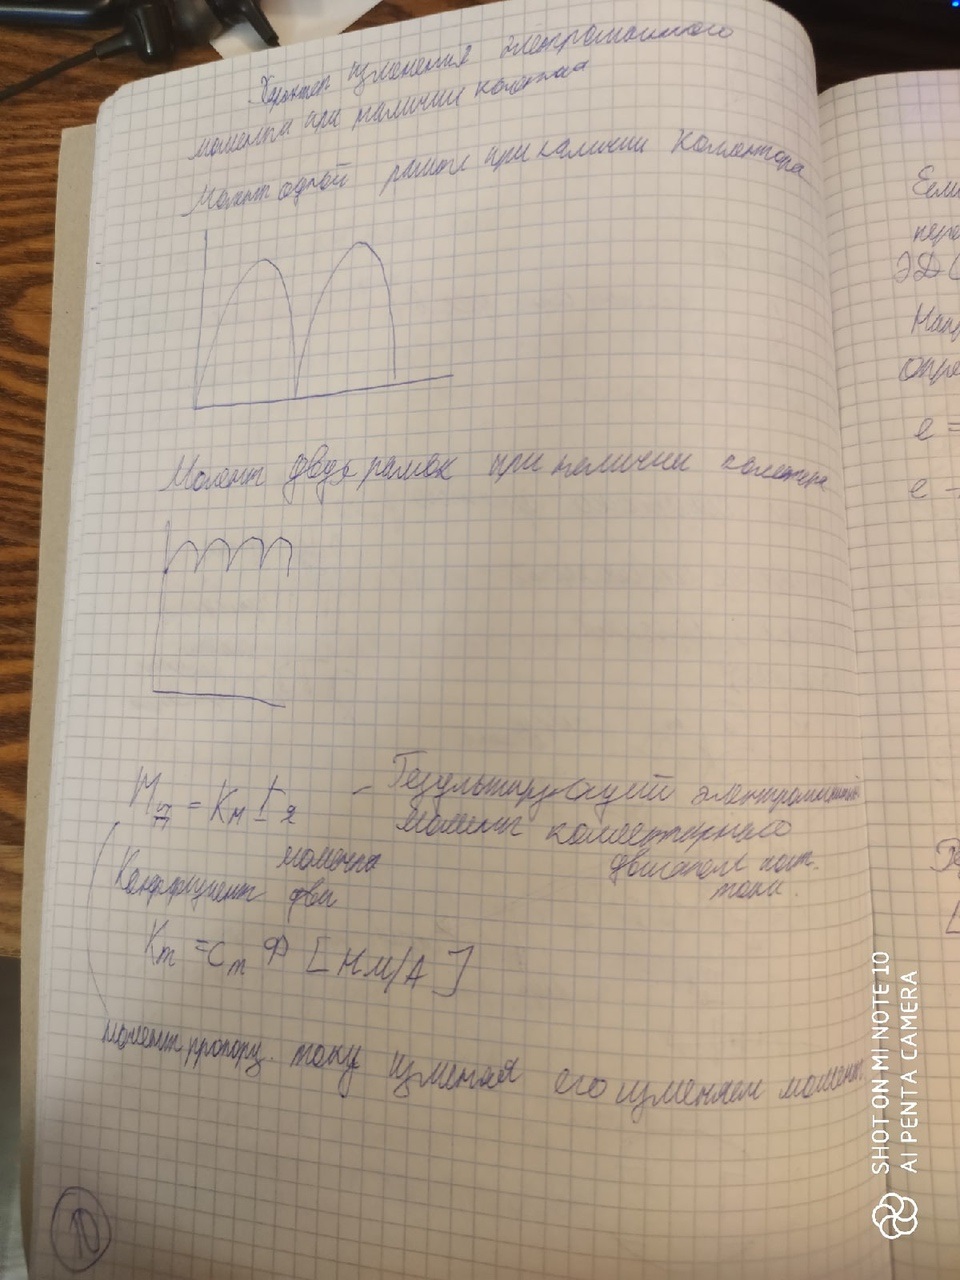 Характер изменения электромагнитного
момента при наличии колектора
Момент одной рамки при наличии коллектора
Момент двух рамок при наличии колектора
M = Kм Iя - Результирующий электромагнитн
момент коллекторного
двигателя пост.
тока.
момента
Коэффициент дви
Km = Cm Ф [НМ/А]
момент пропорц. току изменяя его изменяем момент.
10
Если
пере
ЭДС
Напр
опре
e =
e -
SHOT ON MI NOTE 10
AI PENTA CAMERA